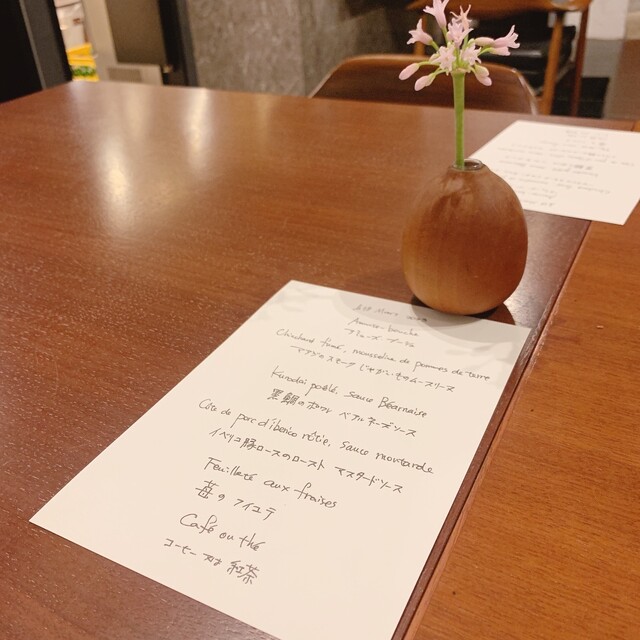 Amuse-bouche
アミューズ ブーシュ
Chinchard fumé, mousseline de pommes de terre
マアジのスモーク じゃがいものムースリーヌ
Kurodai poêlé, sauce Béarnaise
黒鯛のポワレ ベアルネーズソース
Côte de porc d'ibérico rôtie, sauce moutarde
イベリコ豚ロースのロースト マスタードソース
Feuilleté aux fraises
苺のフイユテ
Café ou thé
コーヒー 又は 紅茶